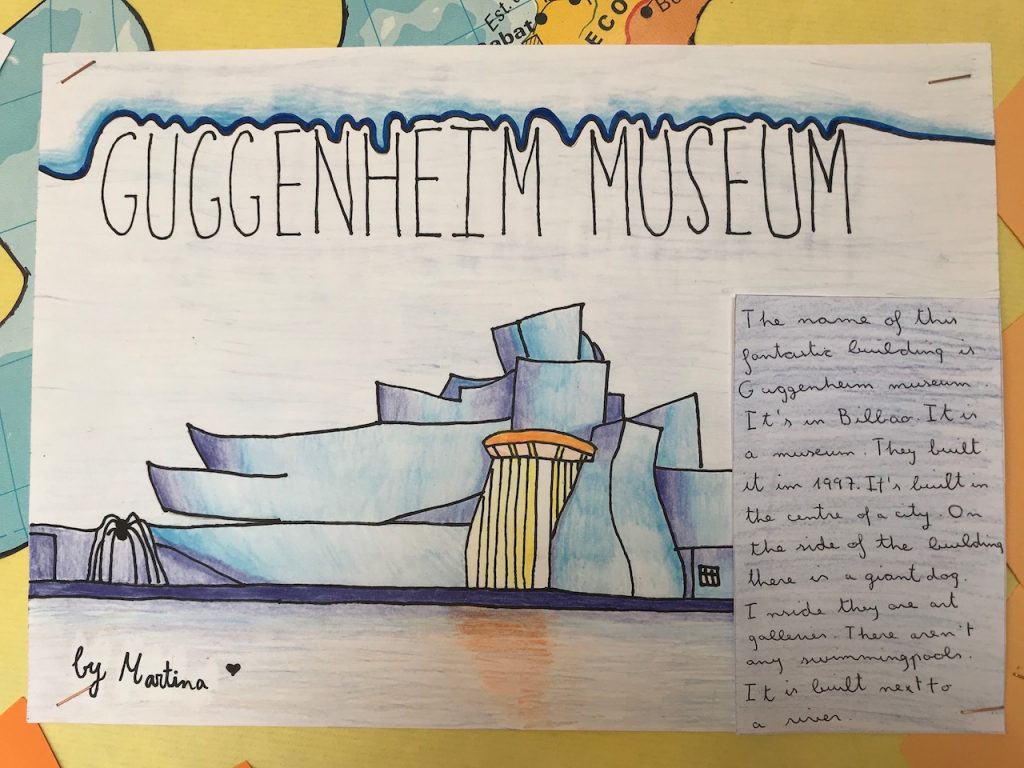 Est. d
Rabat
ECO
Bo
GUGGENHEIM MUSEUM
The name of this
fantastic building is
Guggenheim museum.
It's in Bilbao. It is
a museum. They built
it in 1997. It's built in
the centre of a city. On
the side of the building
there is a giant dog.
Inside they are art
galleries. There aren't
any swimmingpools.
It is built next to
a river.
by Martina